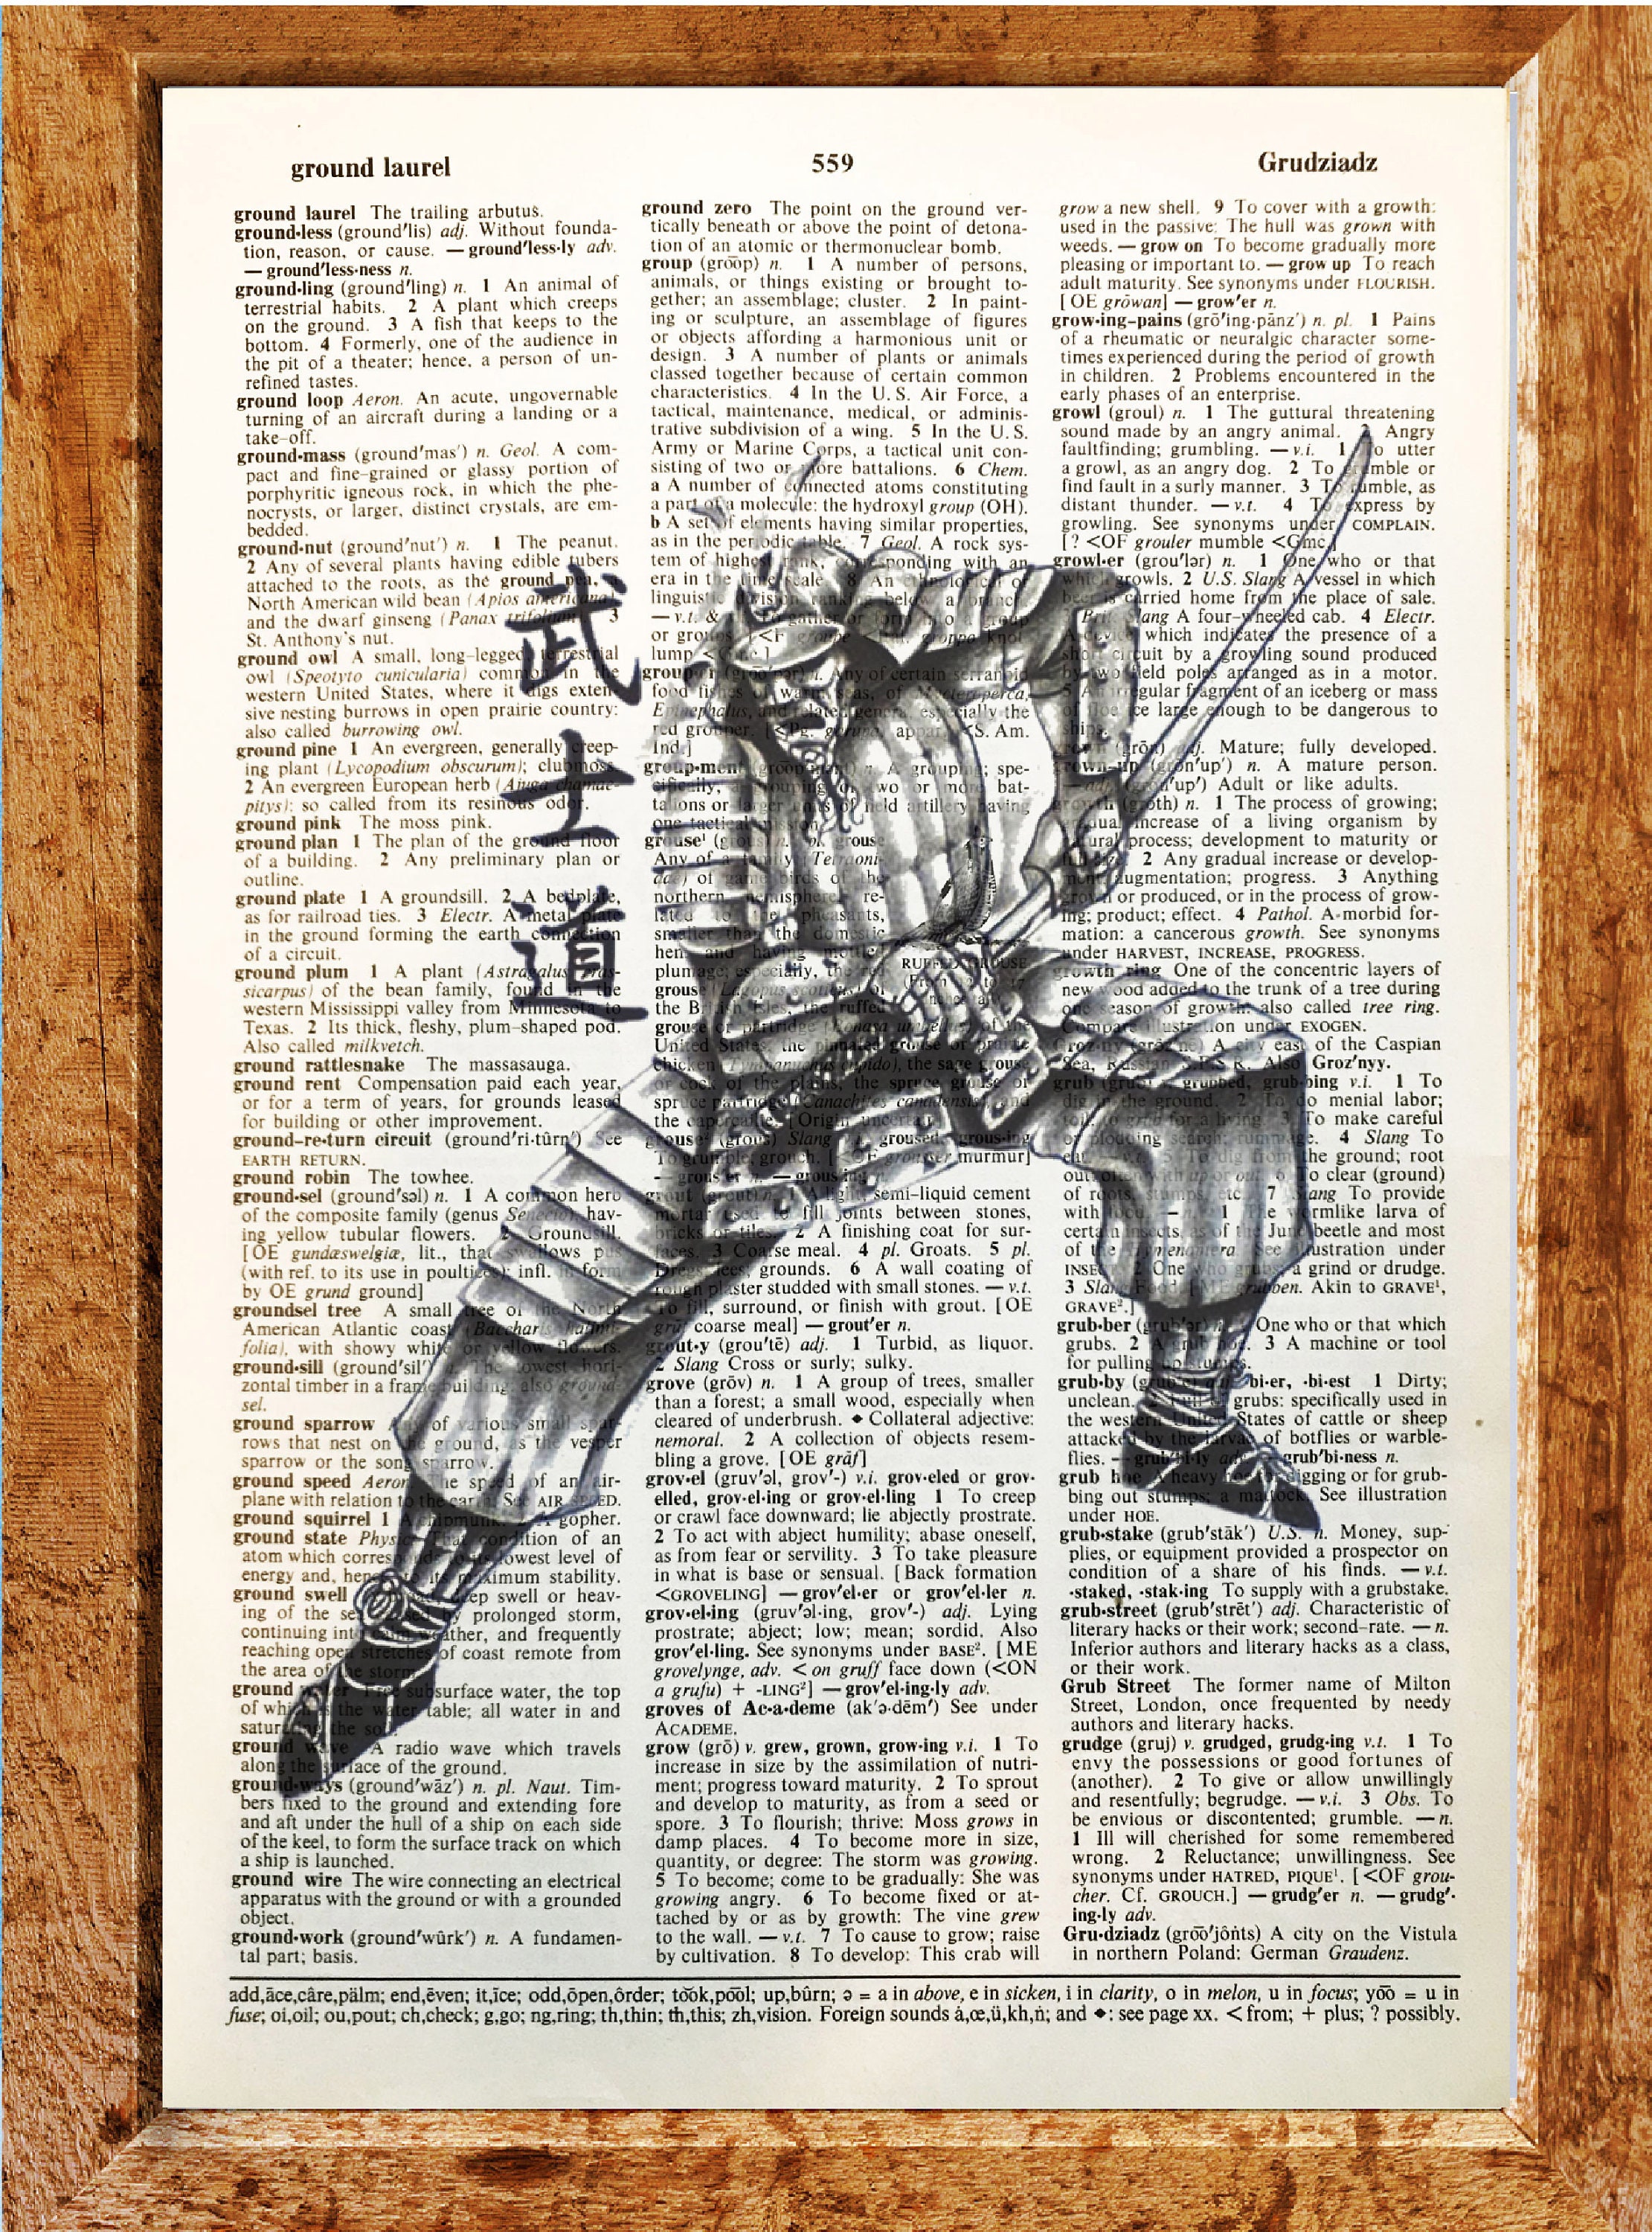 ground laurel
559
Grudziadz
ground laurel The trailing arbutus.
ground·less (ground′lis) adj. Without founda-
tion, reason, or cause. — ground′less·ly adv.
— ground′less·ness n.
ground·ling (ground′ling) n. 1 An animal of
terrestrial habits. 2 A plant which creeps
on the ground. 3 A fish that keeps to the
bottom. 4 Formerly, one of the audience in
the pit of a theater; hence, a person of un-
refined tastes.
ground loop Aeron. An acute, ungovernable
turning of an aircraft during a landing or a
take-off.
ground·mass (ground′mas′) n. Geol. A com-
pact and fine-grained or glassy portion of
porphyritic igneous rock, in which the phe-
nocrysts, or larger, distinct crystals, are em-
bedded.
ground·nut (ground′nut′) n. 1 The peanut.
2 Any of several plants having edible tubers
attached to the roots, as the ground pea,
North American wild bean (Apios americana)
and the dwarf ginseng (Panax trifolium). 3
St. Anthony's nut.
ground owl A small, long-legged terrestrial
owl (Speotyto cunicularia) common in the
western United States, where it digs exten-
sive nesting burrows in open prairie country:
also called burrowing owl.
ground pine 1 An evergreen, generally creep-
ing plant (Lycopodium obscurum); clubmoss.
2 An evergreen European herb (Ajuga chamae-
pitys): so called from its resinous odor.
ground pink The moss pink.
ground plan 1 The plan of the ground floor
of a building. 2 Any preliminary plan or
outline.
ground plate 1 A groundsill. 2 A bedplate,
as for railroad ties. 3 Electr. A metal plate
in the ground forming the earth connection
of a circuit.
ground plum 1 A plant (Astragalus cras-
sicarpus) of the bean family, found in the
western Mississippi valley from Minnesota to
Texas. 2 Its thick, fleshy, plum-shaped pod.
Also called milkvetch.
ground rattlesnake The massasauga.
ground rent Compensation paid each year,
or for a term of years, for grounds leased
for building or other improvement.
ground-re·turn circuit (ground′ri·tûrn′) See
EARTH RETURN.
ground robin The towhee.
ground·sel (ground′səl) n. 1 A common herb
of the composite family (genus Senecio), hav-
ing yellow tubular flowers. 2 Groundsill.
[OE gundæswelgiæ, lit., that swallows pus
(with ref. to its use in poultices); infl. in form
by OE grund ground]
groundsel tree A small tree of the North
American Atlantic coast (Baccharis halimi-
folia), with showy white or yellow flowers.
ground·sill (ground′sil′) n. The lowest hori-
zontal timber in a frame building: also ground-
sel.
ground sparrow Any of various small spar-
rows that nest on the ground, as the vesper
sparrow or the song sparrow.
ground speed Aeron. The speed of an air-
plane with relation to the earth. See AIR SPEED.
ground squirrel 1 A chipmunk. gopher.
ground state Physics That condition of an
atom which corresponds to its lowest level of
energy and, hence, to its maximum stability.
ground swell deep swell or heav-
ing of the sea caused by prolonged storm,
continuing into calm weather, and frequently
reaching open stretches of coast remote from
the area of the storm.
ground water Free subsurface water, the top
of which is the water table; all water in and
saturating the soil.
ground wave A radio wave which travels
along the surface of the ground.
ground·ways (ground′wāz′) n. pl. Naut. Tim-
bers fixed to the ground and extending fore
and aft under the hull of a ship on each side
of the keel, to form the surface track on which
a ship is launched.
ground wire The wire connecting an electrical
apparatus with the ground or with a grounded
object.
ground·work (ground′wûrk′) n. A fundamen-
tal part; basis.
武
士
道
ground zero The point on the ground ver-
tically beneath or above the point of detona-
tion of an atomic or thermonuclear bomb.
group (gro͞op) n. 1 A number of persons,
animals, or things existing or brought to-
gether; an assemblage; cluster. 2 In paint-
ing or sculpture, an assemblage of figures
or objects affording a harmonious unit or
design. 3 A number of plants or animals
classed together because of certain common
characteristics. 4 In the U.S. Air Force, a
tactical, maintenance, medical, or adminis-
trative subdivision of a wing. 5 In the U.S.
Army or Marine Corps, a tactical unit con-
sisting of two or more battalions. 6 Chem.
a A number of connected atoms constituting
a part of a molecule: the hydroxyl group (OH).
b A set of elements having similar properties,
as in the periodic table. 7 Geol. A rock sys-
tem of highest rank, corresponding with an
era in the time scale. 8 An ethnological or
linguistic division ranking below a branch.
— v.t. & gather or form into a group
or groups. [<F groupe <Ital. groppa knot,
lump <Gmc.]
group·er (gro͞o′pər) n. Any of certain serranoid
food fishes of warm seas, of Mycteroperca,
Epinephalus, and related genera, especially the
red grouper. [<Pg. garupa, appar. <S. Am.
Ind.]
group·ment (gro͞op′mənt) n. A grouping; spe-
cifically, a grouping of two or more bat-
talions or larger units of field artillery having
one tactical mission.
grouse¹ (grous) n. pl. grouse
Any of a family (Tetraoni-
dae) of game birds of the
northern hemisphere, re-
lated to the pheasants,
smaller than the domestic
hen, and having mottled
plumage; especially, the red
grouse (Lagopus scoticus) of
the British Isles, the ruffed
grouse or partridge (Bonasa umbellus) of the
United States, the pinnated grouse or prairie
chicken (Tympanuchus cupido), the sage grouse
or cock of the plains, the spruce grouse or
spruce partridge (Canachites canadensis), and
the capercaillie. [Origin uncertain]
RUFFED GROUSE
grouse² (grous) Slang groused, grous·ing
To grumble; grouch. [<OF grouser murmur]
— grous′er n. — grous′ing n.
grout (grout) n. 1 A light, semi-liquid cement
mortar used to fill joints between stones,
bricks or tiles. 2 A finishing coat for sur-
faces. 3 Coarse meal. 4 pl. Groats. 5 pl.
Dregs; lees; grounds. 6 A wall coating of
rough plaster studded with small stones. — v.t.
To fill, surround, or finish with grout. [OE
grūt coarse meal] — grout′er n.
grout·y (grou′tē) adj. 1 Turbid, as liquor.
2 Slang Cross or surly; sulky.
grove (grōv) n. 1 A group of trees, smaller
than a forest; a small wood, especially when
cleared of underbrush. ◆ Collateral adjective:
nemoral. 2 A collection of objects resem-
bling a grove. [OE grāf]
grov·el (gruv′əl, grov′-) v.i. grov·eled or grov·
elled, grov·el·ing or grov·el·ling 1 To creep
or crawl face downward; lie abjectly prostrate.
2 To act with abject humility; abase oneself,
as from fear or servility. 3 To take pleasure
in what is base or sensual. [Back formation
<GROVELING] — grov′el·er or grov′el·ler n.
grov·el·ing (gruv′əl·ing, grov′-) adj. Lying
prostrate; abject; low; mean; sordid. Also
grov′el·ling. See synonyms under BASE². [ME
grovelynge, adv. < on gruff face down (<ON
a grufu) + -LING²] — grov′el·ing·ly adv.
groves of Ac·a·deme (ak′ə·dēm′) See under
ACADEME.
grow (grō) v. grew, grown, grow·ing v.i. 1 To
increase in size by the assimilation of nutri-
ment; progress toward maturity. 2 To sprout
and develop to maturity, as from a seed or
spore. 3 To flourish; thrive: Moss grows in
damp places. 4 To become more in size,
quantity, or degree: The storm was growing.
5 To become; come to be gradually: She was
growing angry. 6 To become fixed or at-
tached by or as by growth: The vine grew
to the wall. — v.t. 7 To cause to grow; raise
by cultivation. 8 To develop: This crab will
grow a new shell. 9 To cover with a growth:
used in the passive: The hull was grown with
weeds. — grow on To become gradually more
pleasing or important to. — grow up To reach
adult maturity. See synonyms under FLOURISH.
[OE grōwan] — grow′er n.
grow·ing-pains (grō′ing·pānz′) n. pl. 1 Pains
of a rheumatic or neuralgic character some-
times experienced during the period of growth
in children. 2 Problems encountered in the
early phases of an enterprise.
growl (groul) n. 1 The guttural threatening
sound made by an angry animal. 2 Angry
faultfinding; grumbling. — v.i. 1 To utter
a growl, as an angry dog. 2 To grumble or
find fault in a surly manner. 3 To rumble, as
distant thunder. — v.t. 4 To express by
growling. See synonyms under COMPLAIN.
[? <OF grouler mumble <Gmc.]
growl·er (grou′lər) n. 1 One who or that
which growls. 2 U.S. Slang A vessel in which
beer is carried home from the place of sale.
Brit. Slang A four-wheeled cab. 4 Electr.
A device which indicates the presence of a
short circuit by a growling sound produced
by two field poles arranged as in a motor.
5 An irregular fragment of an iceberg or mass
of floe ice large enough to be dangerous to
ships.
grown (grōn) adj. Mature; fully developed.
grown-up (grōn′up′) n. A mature person.
(grōn′up′) Adult or like adults.
growth (grōth) n. 1 The process of growing;
gradual increase of a living organism by
natural process; development to maturity or
full size. 2 Any gradual increase or develop-
ment; augmentation; progress. 3 Anything
grown or produced, or in the process of grow-
ing; product; effect. 4 Pathol. A morbid for-
mation: a cancerous growth. See synonyms
under HARVEST, INCREASE, PROGRESS.
growth ring One of the concentric layers of
new wood added to the trunk of a tree during
one season of growth: also called tree ring.
Compare illustration under EXOGEN.
Groz·ny (grôz′ne) A city east of the Caspian
Sea, Russian S.F.S.R. Also Groz′nyy.
grub (grub) v. grubbed, grub·bing v.i. 1 To
dig in the ground. 2 To do menial labor;
3 To make careful
or plodding search; rummage. 4 Slang To
eat. — v.t. 5 To dig from the ground; root
out: often with up or out. 6 To clear (ground)
of roots, stumps, etc. 7 Slang To provide
with food. — n. 1 The wormlike larva of
certain insects, as of the June beetle and most
of the Hymenoptera. See illustration under
INSECT. 2 One who grubs; a grind or drudge.
3 Slang Food. [ME grubben. Akin to GRAVE¹,
GRAVE².]
grub·ber (grub′ər) n. 1 One who or that which
grubs. 2 A grub hoe. 3 A machine or tool
for pulling up stumps.
grub·by (grub′ē) adj. ·bi·er, ·bi·est 1 Dirty;
unclean. 2 Full of grubs: specifically used in
the western United States of cattle or sheep
attacked by the larvae of botflies or warble-
flies. — grub′bi·ly adv. — grub′bi·ness n.
grub hoe A heavy hoe for digging or for grub-
bing out stumps; a mattock. See illustration
under HOE.
grub·stake (grub′stāk′) U.S. n. Money, sup-
plies, or equipment provided a prospector on
condition of a share of his finds. — v.t.
·staked, ·stak·ing To supply with a grubstake.
grub·street (grub′strēt′) adj. Characteristic of
literary hacks or their work; second-rate. — n.
Inferior authors and literary hacks as a class,
or their work.
Grub Street The former name of Milton
Street, London, once frequented by needy
authors and literary hacks.
grudge (gruj) v. grudged, grudg·ing v.t. 1 To
envy the possessions or good fortunes of
(another). 2 To give or allow unwillingly
and resentfully; begrudge. — v.i. 3 Obs. To
be envious or discontented; grumble. — n.
1 Ill will cherished for some remembered
wrong. 2 Reluctance; unwillingness. See
synonyms under HATRED, PIQUE¹. [<OF grou-
cher. Cf. GROUCH.] — grudg′er n. — grudg′·
ing·ly adv.
Gru·dziadz (gro͞o′jônts) A city on the Vistula
in northern Poland: German Graudenz.
add,āce,câre,pälm; end,ēven; it,īce; odd,ōpen,ôrder; to͝ok,po͞ol; up,bûrn; ə = a in above, e in sicken, i in clarity, o in melon, u in focus; yo͞o = u in
fuse; oi,oil; ou,pout; ch,check; g,go; ng,ring; th,thin; th,this; zh,vision. Foreign sounds á,œ,ü,kh,ṅ; and ◆: see page xx. < from; + plus; ? possibly.